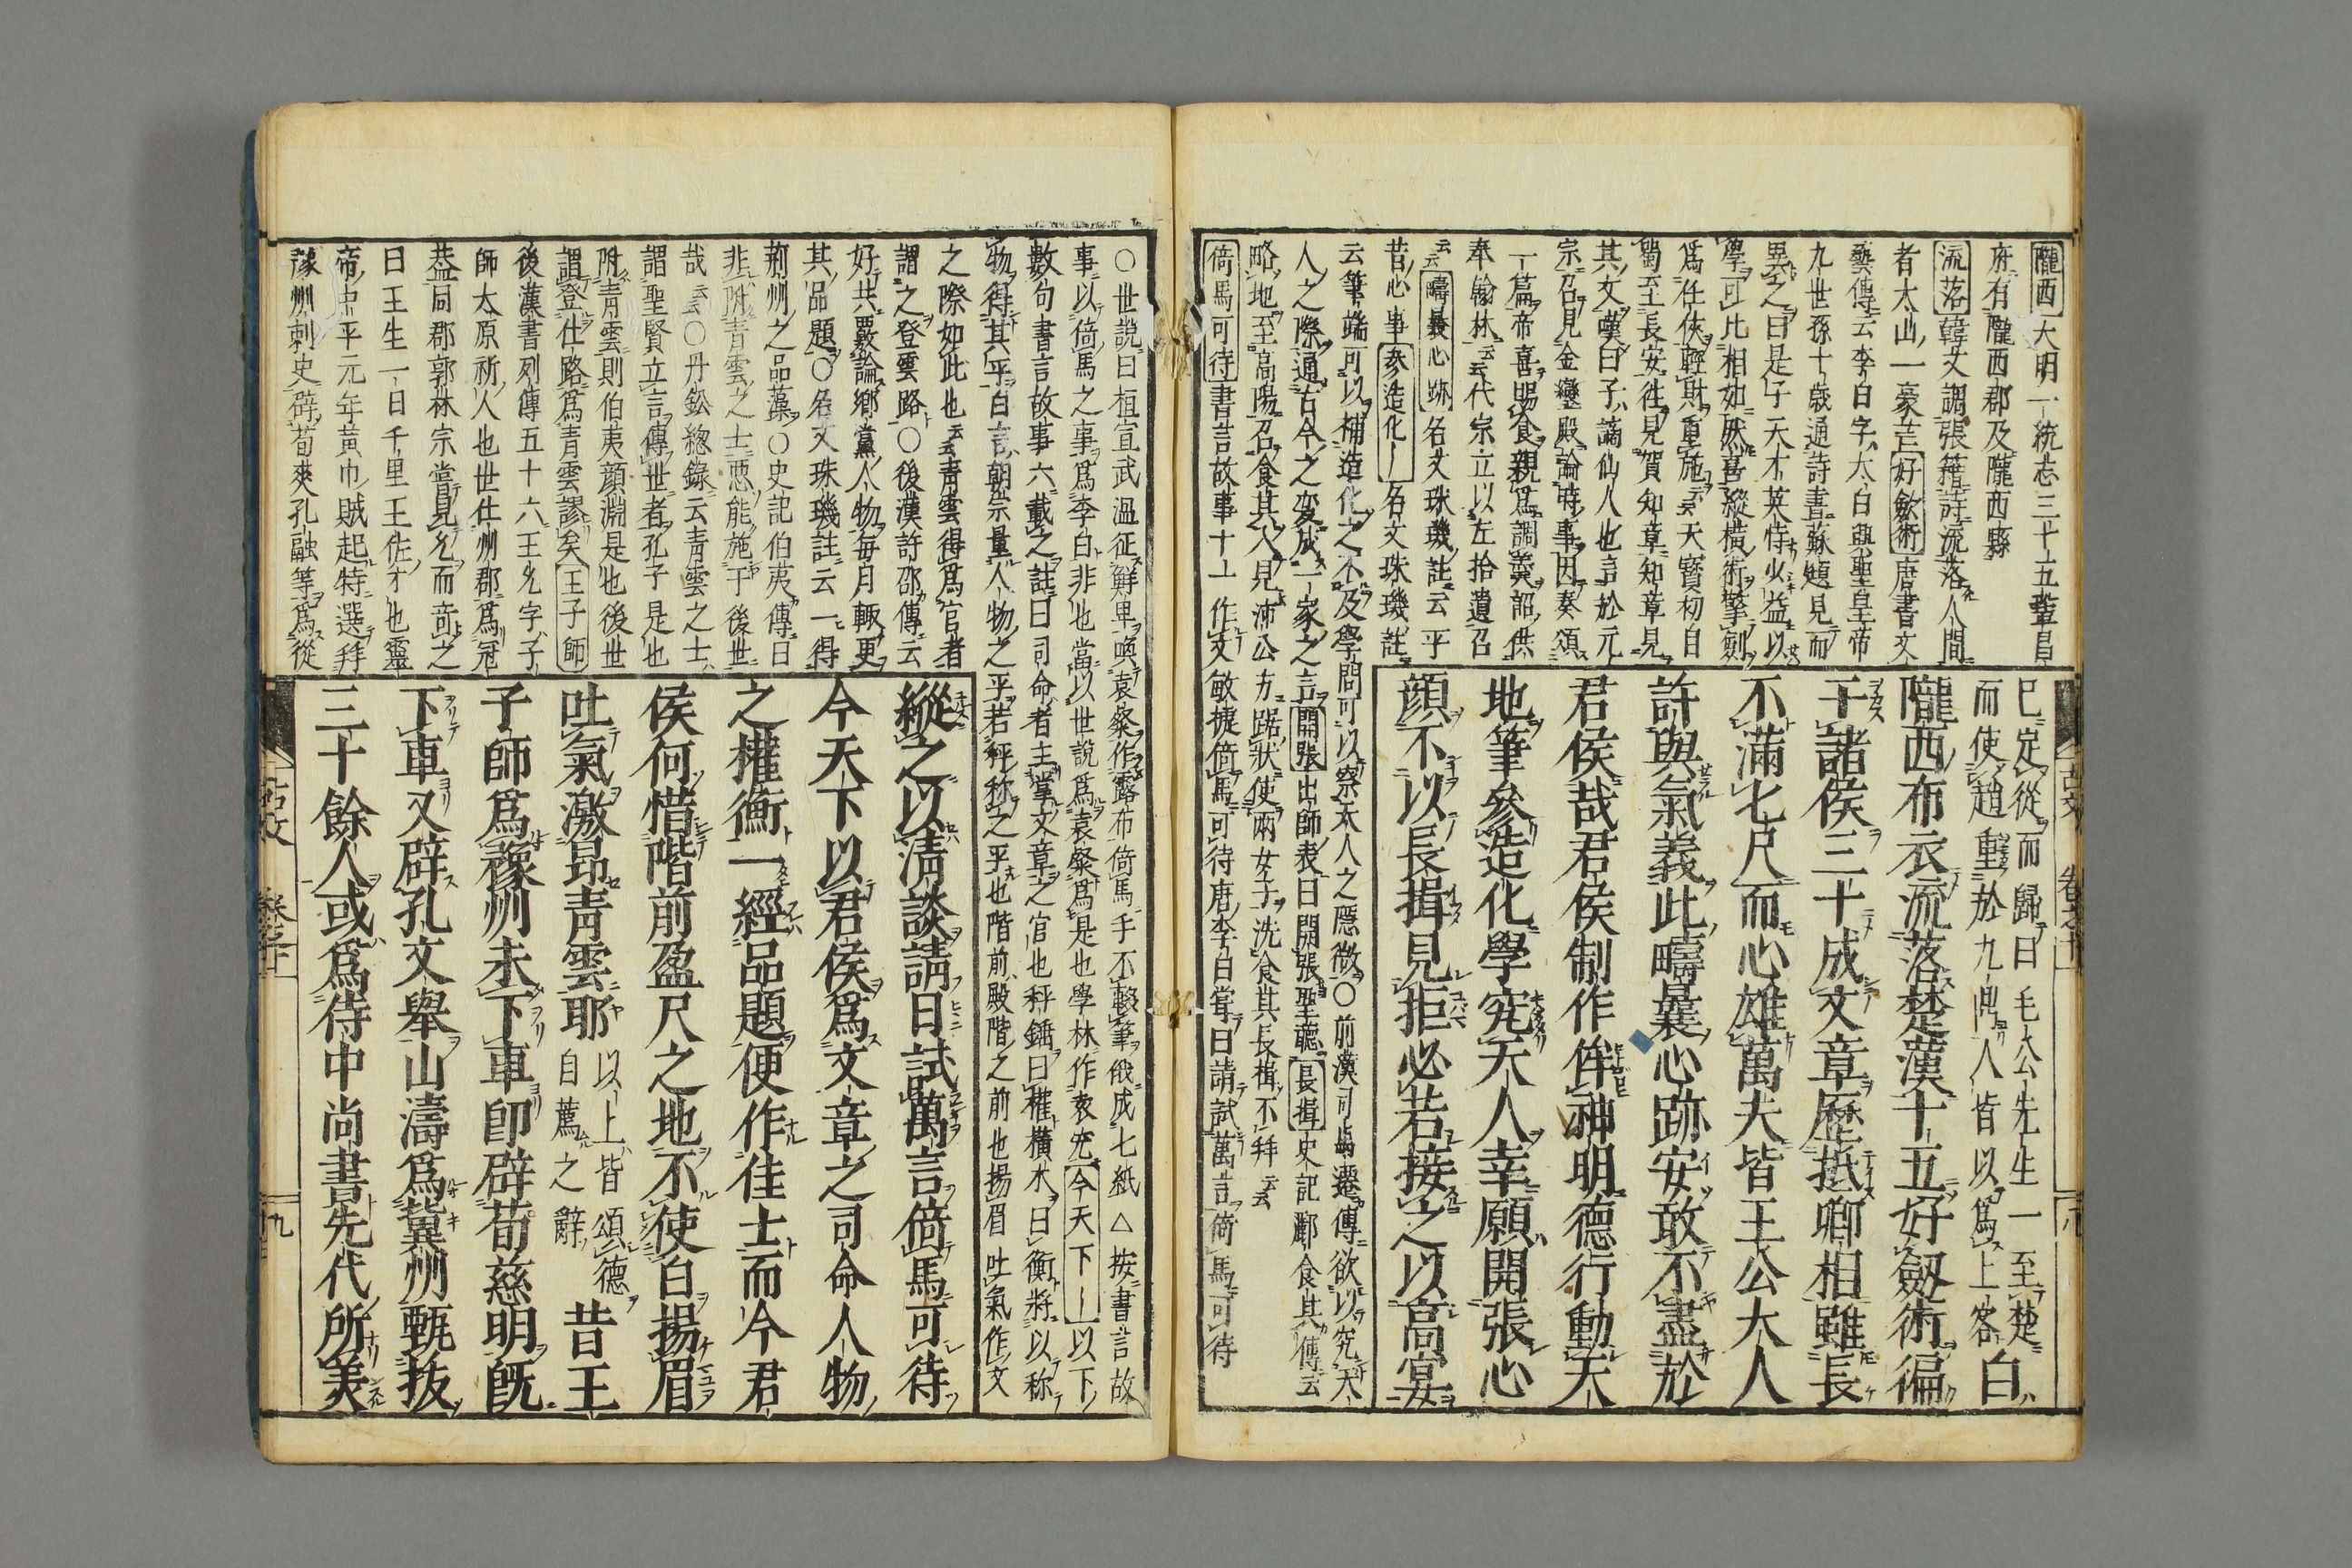 隴西大明一統志三十五鞏昌
府有隴西郡及隴西縣
流落韓文調張籍詩流落人間
者太山一豪芒好劒術唐書文
藝傳云李白字太白興聖皇帝
九世孫十歳通詩書蘇頲見而
異之曰是子天才英特少益以
學可比相如然喜縱横術撃劍
爲任俠輕財重施云云天寳初自
蜀至長安往見賀知章知章見
其文嘆曰子謫仙人也言於元
宗召見金鑾殿論時事因奏頌
一篇帝喜賜食親爲調羹詔供
奉翰林云云代宗立以左拾遺召
云云疇曩心跡名文珠璣註云平
昔心事參造化〡名文珠璣註
云筆端可以補造化之不及學問可以察天人之隱微○前漢司馬遷傳欲以究天
人之際通古今之変成一家之言開張出師表曰開張聖聽長揖史記酈食其傳云
略地至高陽召食其入見沛公方踞牀使兩女子洗食其長楫不拜云云
倚馬可待書言故事十一作文敏捷倚馬可待唐李白嘗曰請試萬言倚馬可待
已定從而歸曰毛公先生一至楚
而使趙重於九鼎人皆以爲上客白
隴西布衣流落楚漢十五好劔術徧
干諸侯三十成文章歴抵卿相雖長
不滿七尺而心雄萬夫皆王公大人
許與氣義此疇曩心跡安敢不盡於
君侯哉君侯制作侔神明德行動天
地筆參造化學究天人幸願開張心
顔不以長揖見拒必若接之以高宴
古文 卷之十 八
○世説曰桓宣武温征鮮卑喚袁粲作露布倚馬手不輟筆俄成七紙△按書言故
事以倚馬之事爲李白非也當以世説爲袁粲爲是也學林作袁宏今天下〡以下
數句書言故事六載之註曰司命者主掌文章之官也秤錘曰權横木曰衡將以称
物得其平白言朝宗量人物之平若秤称之平也階前殿階之前也揚眉吐氣作文
之際如此也云云青雲得爲官者
謂之登雲路○後漢許邵傳云
好共覈論郷黨人物毎月輙更
其品題○名文珠璣註云一得
荊州之品藻○史記伯夷傳曰
非附青雲之士悪能施于後世
哉云云○丹鈆總錄云青雲之士
謂聖賢立言傳世者孔子是也
附青雲則伯夷顔淵是也後世
謂登仕路爲青雲謬矣王子師
後漢書列傳五十六王允字子
師太原祈人也世仕州郡爲冠
葢同郡郭林宗嘗見允而奇之
曰王生一日千里王佐才也靈
帝中平元年黄巾賊起特選拜
豫州刺史辟荀爽孔融等爲從
縱之以淸談請日試萬言倚馬可待
今天下以君侯爲文章之司命人物
之權衡一經品題便作佳士而今君
侯何惜階前盈尺之地不使白揚眉
吐氣激昂青雲耶以上皆頌德自薦之辭昔王
子師爲豫州未下車即辟荀慈明旣
下車又辟孔文舉山濤爲冀州甄抜
三十餘人或爲侍中尚書先代所美
古文 卷之十 九